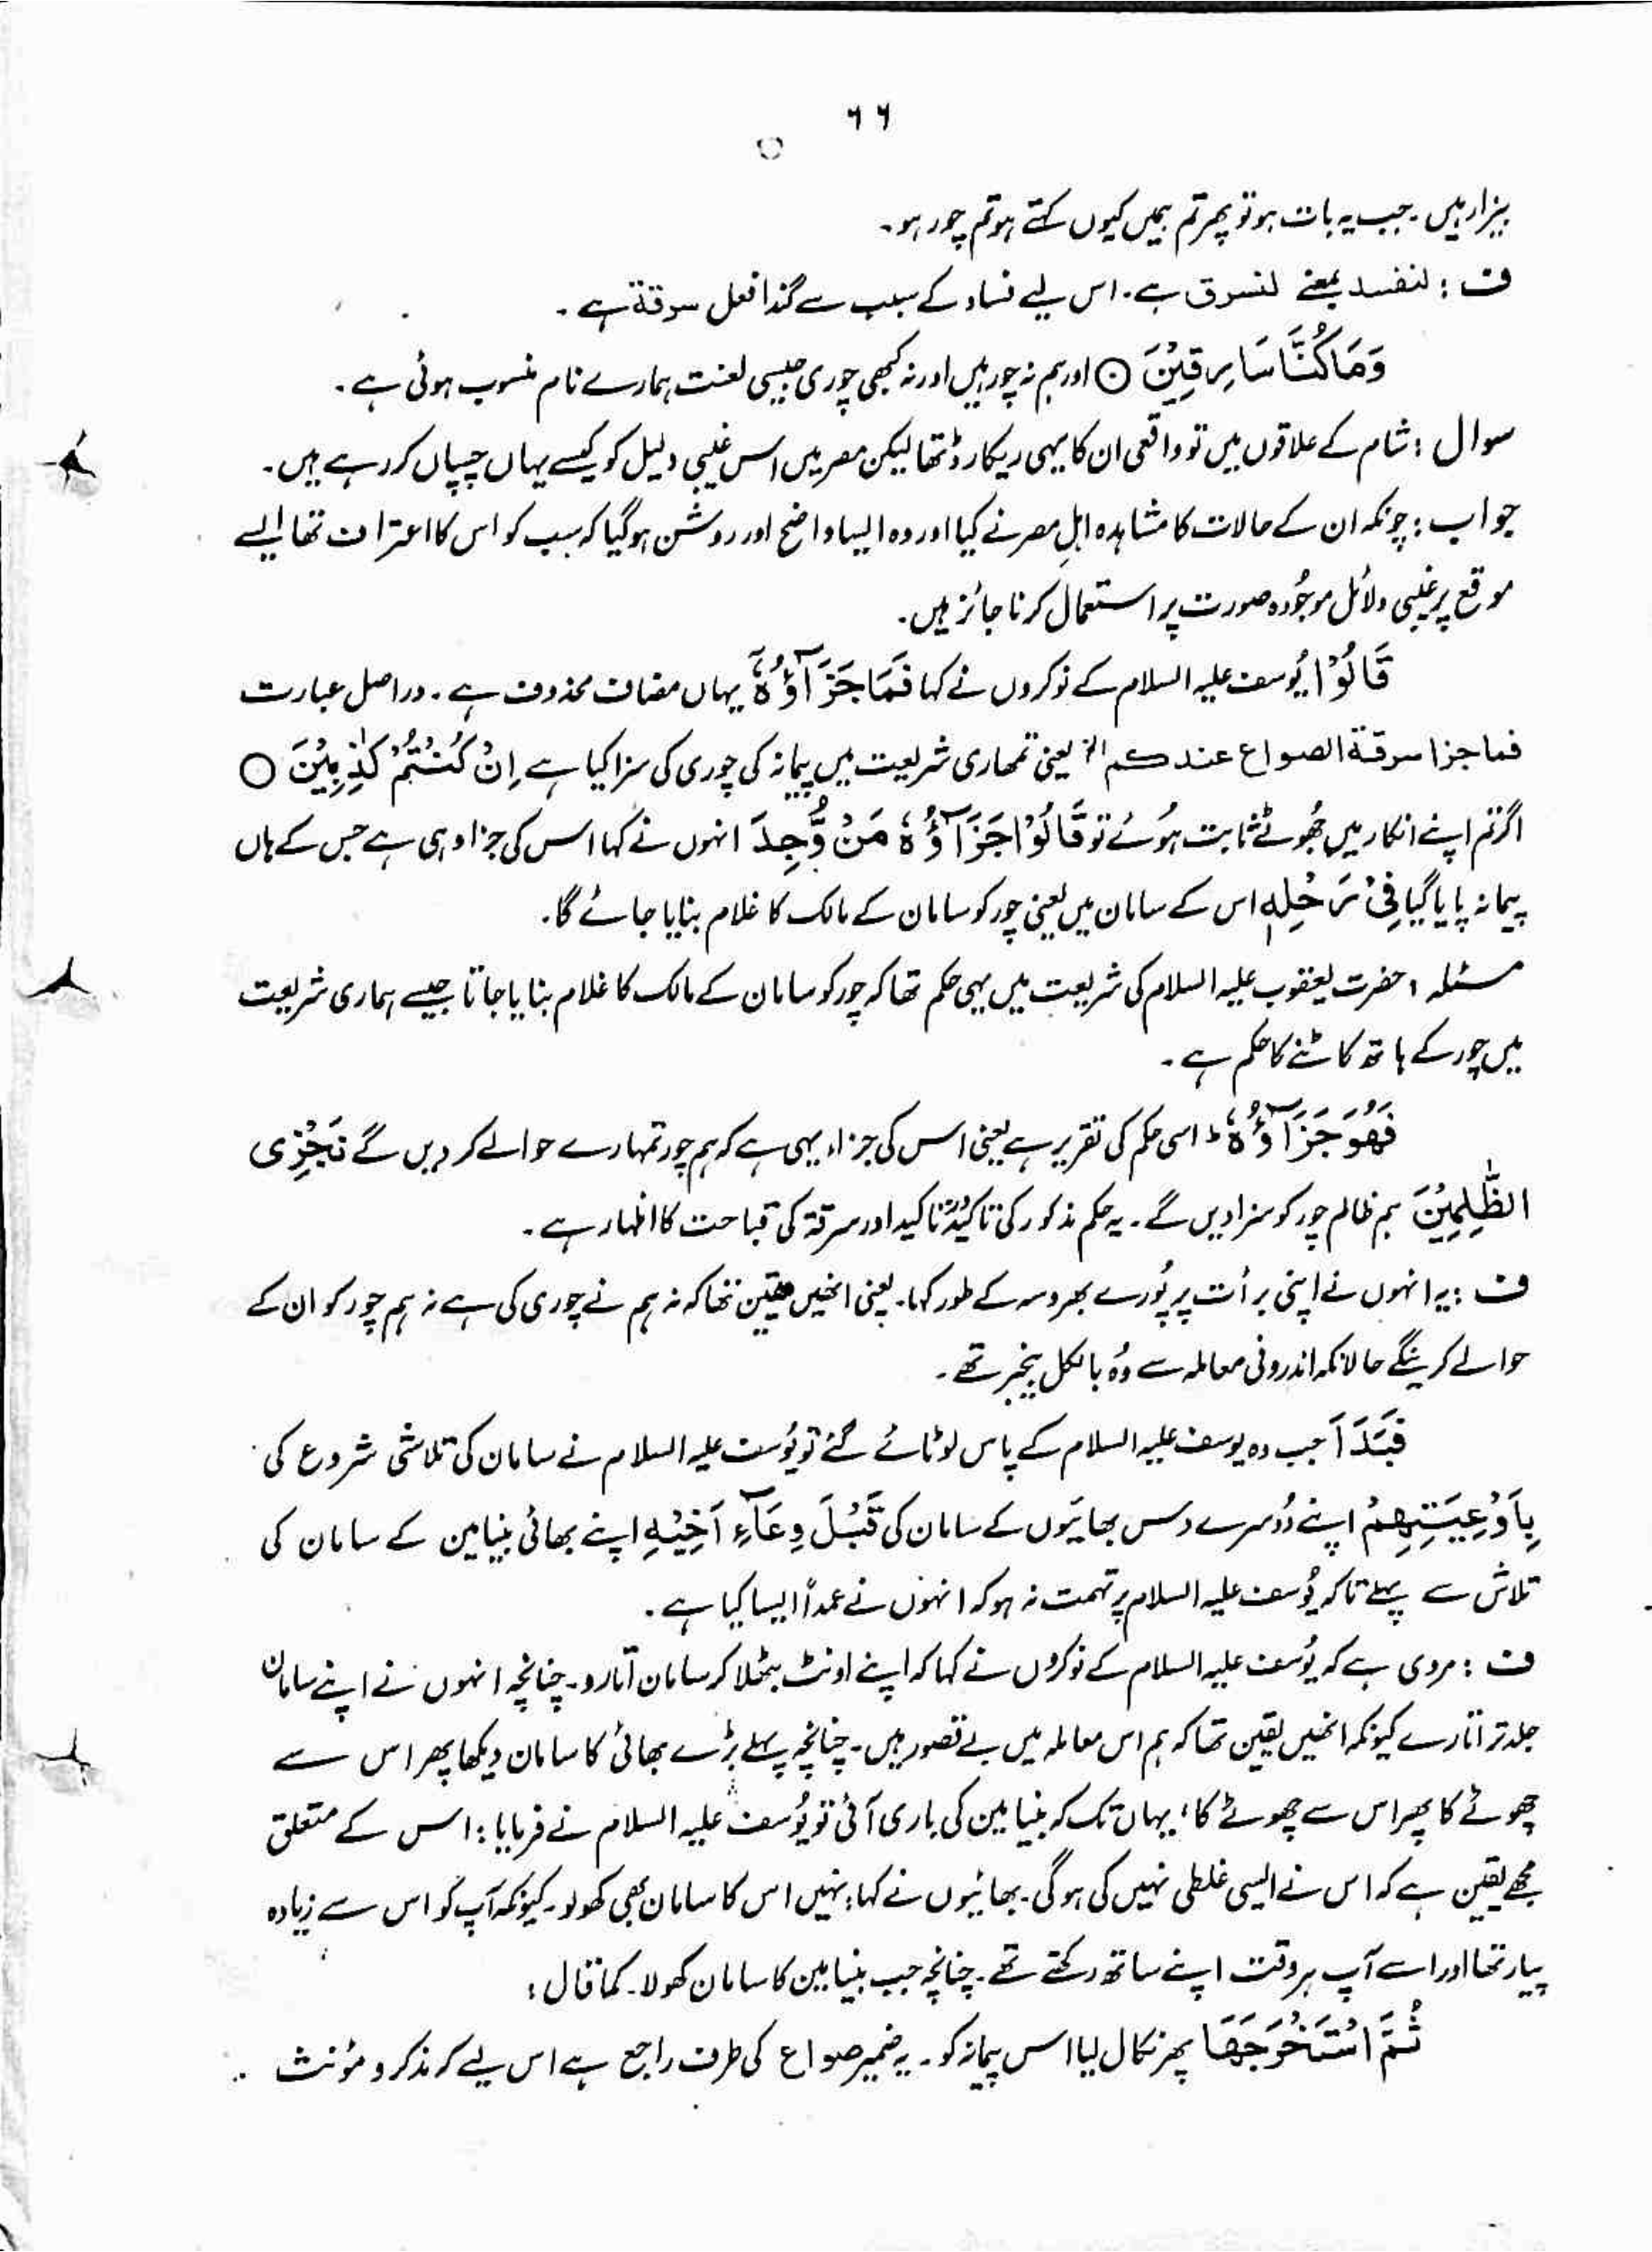 ٦٦
بیزار ہیں ۔ جب یہ بات ہو تو پھر تم ہمیں کیوں کہتے ہو تم چور ہو ۔
ف : لنفسد بمعنے لنسرق ہے ۔ اس لیے فساد کے سبب سے گندا فعل سرقة ہے ۔
وَمَا كُنَّا سَارِقِيْنَ ○ اور ہم نہ چور ہیں اور نہ کبھی چوری جیسی لعنت ہمارے نام منسوب ہوئی ہے ۔
سوال : شام کے علاقوں میں تو واقعی ان کا یہی ریکارڈ تھا لیکن مصر میں اس غیبی دلیل کو کیسے یہاں چسپاں کر رہے ہیں ۔
جواب : چونکہ ان کے حالات کا مشاہدہ اہلِ مصر نے کیا اور وہ ایسا واضح اور روشن ہوگیا کہ سب کو اس کا اعتراف تھا ایسے
موقع پر غیبی دلائل موجُودہ صورت پر استعمال کرنا جائز ہیں ۔
قَالُوْا یُوسف علیہ السلام کے نوکروں نے کہا فَمَا جَزَآؤُهٗٓ یہاں مضاف محذوف ہے ۔ دراصل عبارت
فما جزا سرقة الصواع عندكم الخ یعنی تمھاری شریعت میں پیمانہ کی چوری کی سزا کیا ہے اِنْ كُنْتُمْ كٰذِبِيْنَ ○
اگر تم اپنے انکار میں جُھوٹے ثابت ہُوئے تو قَالُوْا جَزَآؤُهٗ مَنْ وُّجِدَ انہوں نے کہا اس کی جزا وہی ہے جس کے ہاں
پیمانہ پایا گیا فِيْ رَحْلِهٖ اس کے سامان میں یعنی چور کو سامان کے مالک کا غلام بنایا جائے گا ۔
مسئلہ : حضرت یعقوب علیہ السلام کی شریعت میں یہی حکم تھا کہ چور کو سامان کے مالک کا غلام بنایا جاتا جیسے ہماری شریعت
میں چور کے ہاتھ کاٹنے کا حکم ہے ۔
فَهُوَ جَزَآؤُهٗ ؕ اسی حکم کی تقریر ہے یعنی اس کی جزاء یہی ہے کہ ہم چور تمہارے حوالے کر دیں گے نَجْزِى
الظّٰلِمِيْنَ ہم ظالم چور کو سزا دیں گے ۔ یہ حکم مذکور کی تاکیدٌ تاکید اور سرقة کی قباحت کا اظہار ہے ۔
ف : یہ انہوں نے اپنی برأت پر پُورے بھروسہ کے طور کہا ۔ یعنی انھیں یقین تھا کہ نہ ہم نے چوری کی ہے نہ ہم چور کو ان کے
حوالے کرینگے حالانکہ اندرونی معاملہ سے وُہ بالکل بیخبر تھے ۔
فَبَدَاَ جب وہ یوسف علیہ السلام کے پاس لوٹائے گئے تو یُوسف علیہ السلام نے سامان کی تلاشی شروع کی
بِاَوْعِيَتِهِمْ اپنے دُوسرے دس بھائیوں کے سامان کی قَبْلَ وِعَآءِ اَخِيْهِ اپنے بھائی بنیامین کے سامان کی
تلاش سے پہلے تاکہ یُوسف علیہ السلام پر تہمت نہ ہو کہ انہوں نے عمداً ایسا کیا ہے ۔
ف : مروی ہے کہ یُوسف علیہ السلام کے نوکروں نے کہا کہ اپنے اونٹ بٹھلا کر سامان اتارو ۔ چنانچہ انہوں نے اپنے سامان
جلد تر اتارے کیونکہ انھیں یقین تھا کہ ہم اس معاملہ میں بے قصور ہیں ۔ چنانچہ پہلے بڑے بھائی کا سامان دیکھا پھر اس سے
چھوٹے کا پھر اس سے چھوٹے کا ، یہاں تک کہ بنیامین کی باری آئی تو یُوسف علیہ السلام نے فرمایا : اس کے متعلق
مجھے یقین ہے کہ اس نے ایسی غلطی نہیں کی ہوگی ۔ بھائیوں نے کہا : نہیں اس کا سامان بھی کھولو ۔ کیونکہ آپ کو اس سے زیادہ
پیار تھا اور اسے آپ ہر وقت اپنے ساتھ رکھتے تھے ۔ چنانچہ جب بنیامین کا سامان کھولا ۔ کما قال :
ثُمَّ اسْتَخْرَجَهَا پھر نکال لیا اس پیمانہ کو ۔ یہ ضمیر صواع کی طرف راجع ہے اس لیے کہ مذکر و مؤنث